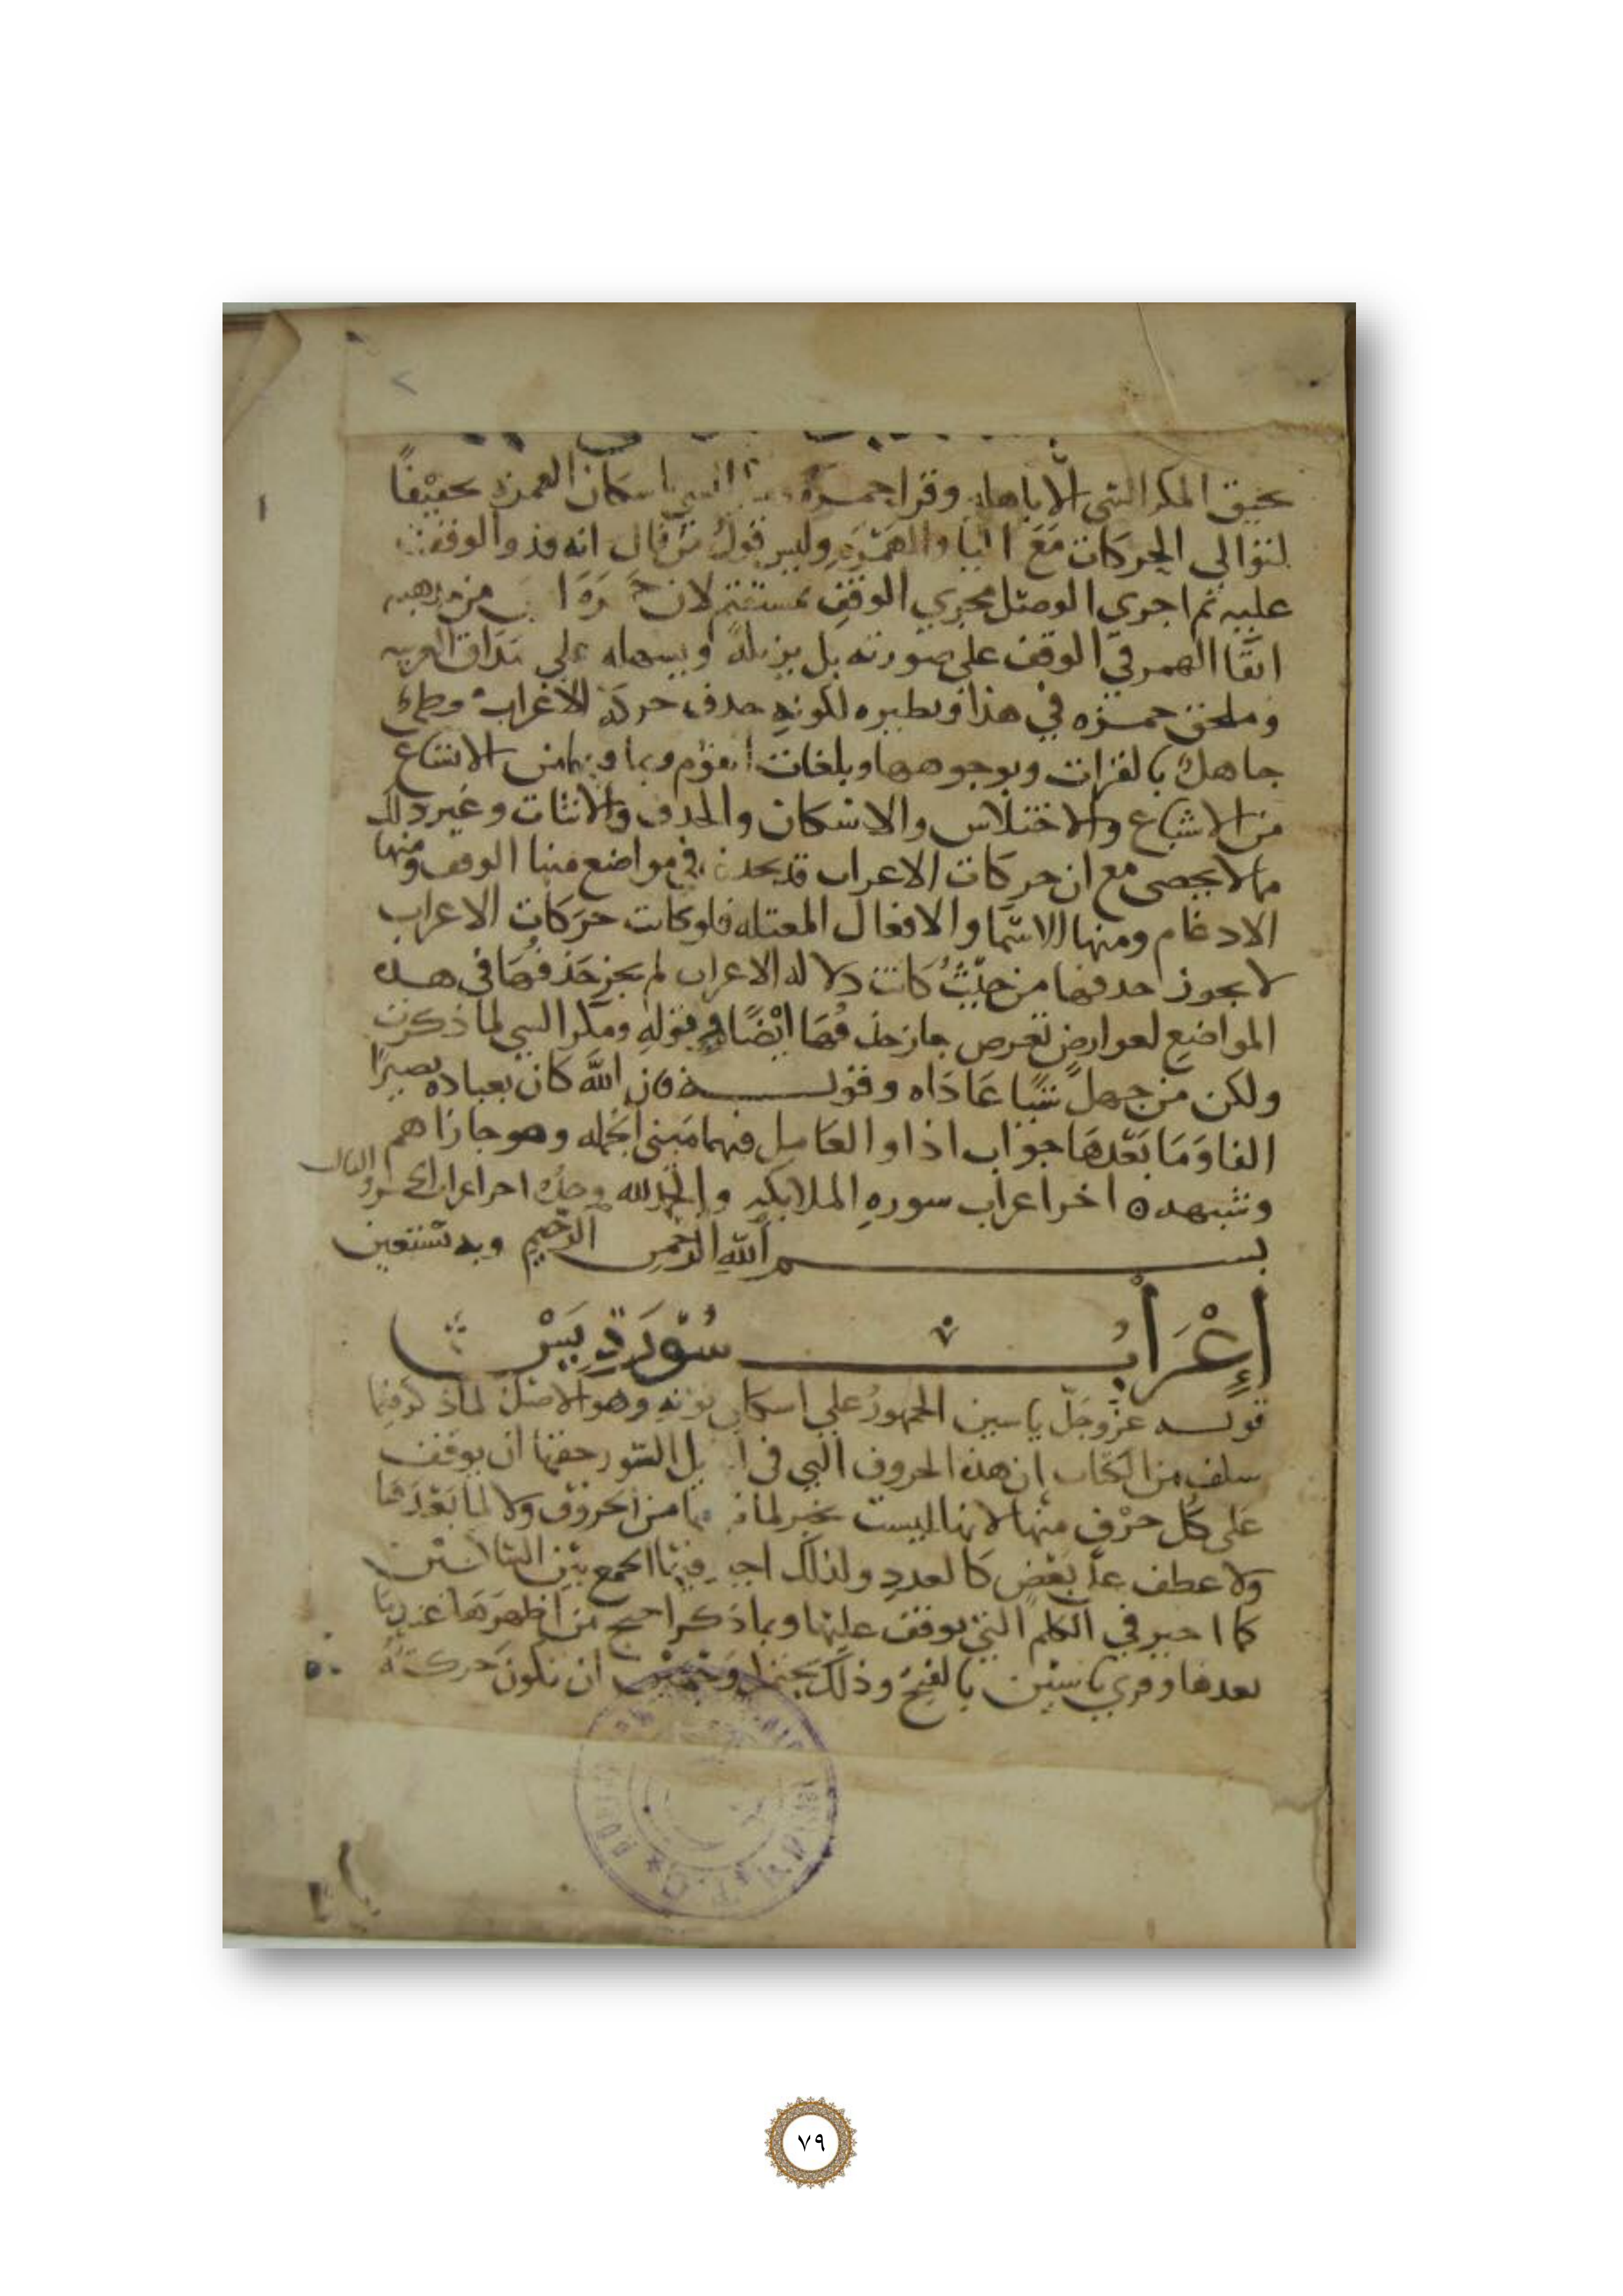 يحيق المكر السيئ الا باهله وقرا حمزة السيئ باسكان الهمزة تخفيفًا
لتوالي الحركات مَعَ اليا والهَمْزَةِ وليس قول مَن قال انه قدر الوقف
عليه ثم اجرى الوصل مجرى الوقف بمستقيم لان حَمزَةَ من مذهبه
ابقا الهمز في الوقف على صورته بل يزيله اويسهله على مذاق العربيه
وملحن حمزه في هذا ونظيره لكونه حذف حركة الاعراب
جاهل بالقراات وبوجوهها وبلغات القوم وبما من الاتساع
من الاشباع والاختلاس والاسكان والحذف والاثبات وغير ذلك
مما لا يحصى مع ان حركات الاعراب قد تحذف في مواضع منها الوقف ومنها
الادغام ومنها الاسما والافعال المعتله فلو كانت حرَكات الاعراب
لا يجوز حذفها من حيْثُ كانت دلاله الاعراب لم يجز حَذفُهَا في هذه
المواضع لعوارض تعرض جاز حذفُهَا ايْضًا في قوله ومكر السيئ لما ذكرت
ولكن من جهلَ شيًا عَادَاه وقولــه فان اللَّه كان بعباده بصيرًا
الفا وَمَا بَعْدهَا جوَاب اذا والعَامل فيها مَعنى الجمله وهو جازاهم
وشبهه ٥ اخر اعراب سورهِ الملايكه والحمد لله وحدُه اخر اعراب الجزو الثالث
بســـم اللَّهِ الرَّحمن الرَّحيم وبه نَسْتعين
إِعْرَابُ سُوْرَةِ يَسْ
قولــه عزَّ وجَلّ ياسين الجمهورُ على اسكان نونه وهو الاصل لما ذكر فيما
سلف من الكتاب ان هذه الحروف التي في اوايل السّور حقها ان يوقف
عَلى كل حرْف منها لانها ليست بخبر لما من الحروف ولا لما بَعْدهَا
ولا عطف على بَعْضٍ كالعدد ولذلك اجيز فيها الجمع بَيْن الساكنَيْن
كما اجيز في الكلم التي يوقف عليها وبما ذكر احتج من اظهرَهَا عند ما
بعدها وقري ياسين بالفتح وذلك يحتمل وَجْهَيْن ان تكون حركتُه
٧٩